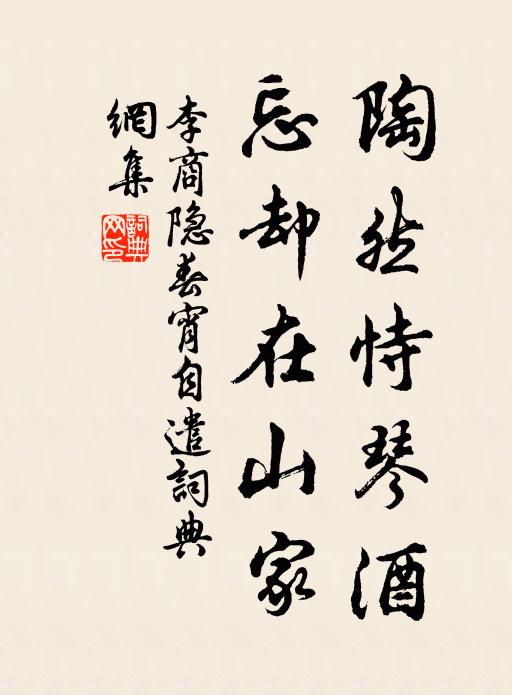 陶然恃琴酒
忘却在山家
李商隐春宵自遣詞典
網集
詞典
网印